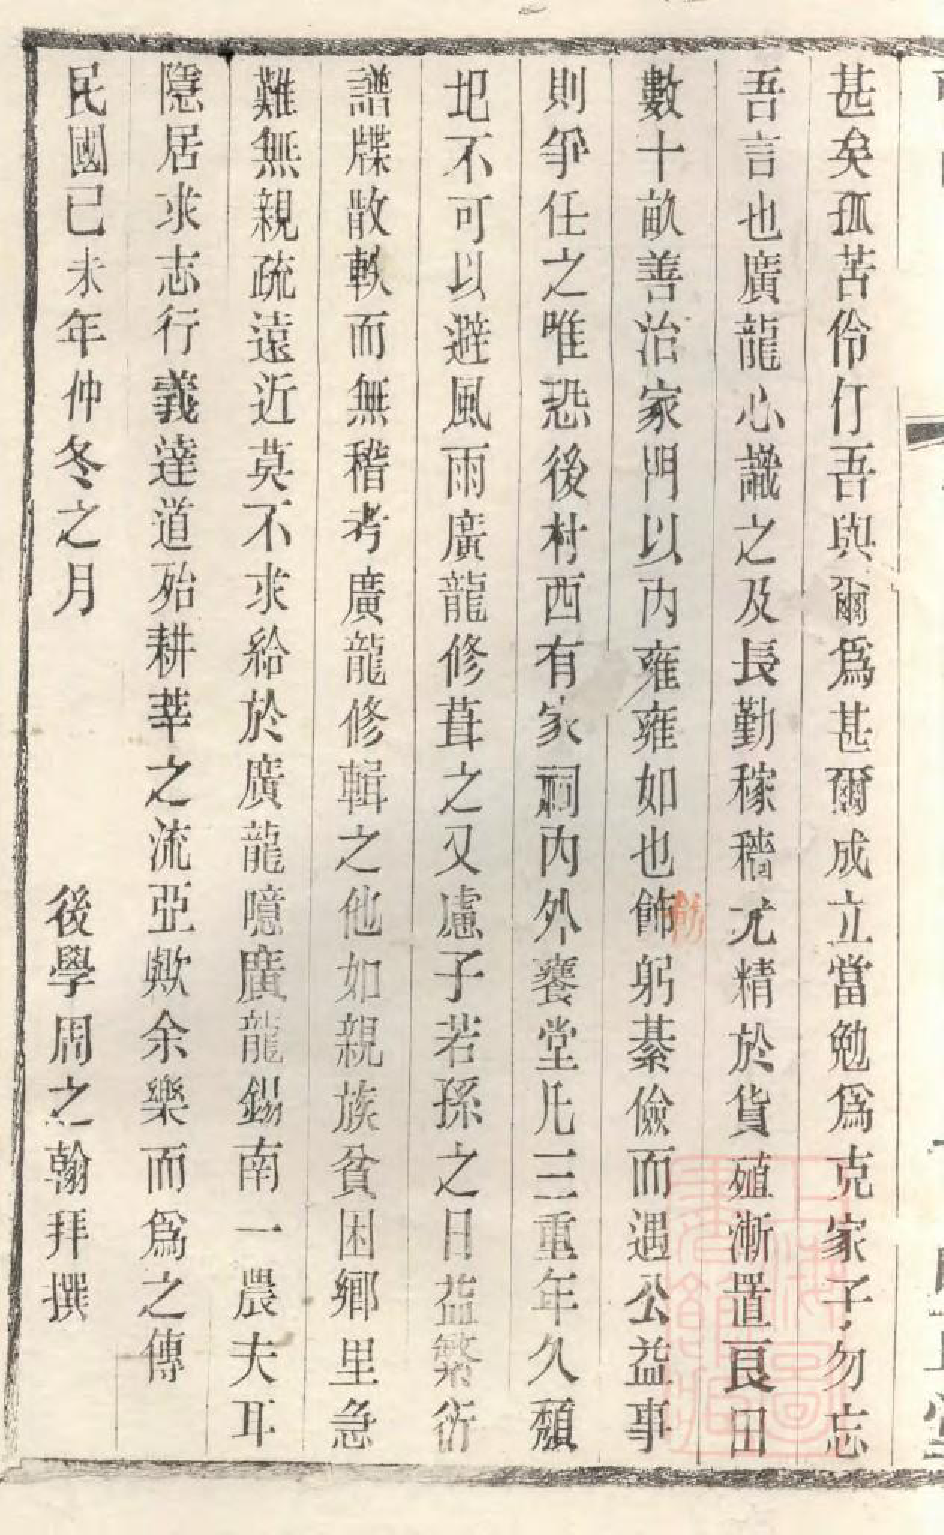 甚矣孤苦伶仃吾與爾爲甚爾成立當勉爲克家子勿忘
吾言也廣龍心識之及長勤稼穡尤精於貨殖漸置良田
數十畝善治家門以内雍雍如也飾躬綦儉而遇公益事
則爭任之唯恐後村西有家祠内外饗堂凡三重年久頹
圯不可以避風雨廣龍修葺之又慮子若孫之日益繁衍
譜牒散軼而無稽考廣龍修輯之他如親族貧困鄉里急
難無親疏遠近莫不求給於廣龍噫廣龍錫南一農夫耳
隱居求志行義達道殆耕莘之流亞歟余樂而爲之傳
民國已未年仲冬之月
後學周之翰拜撰